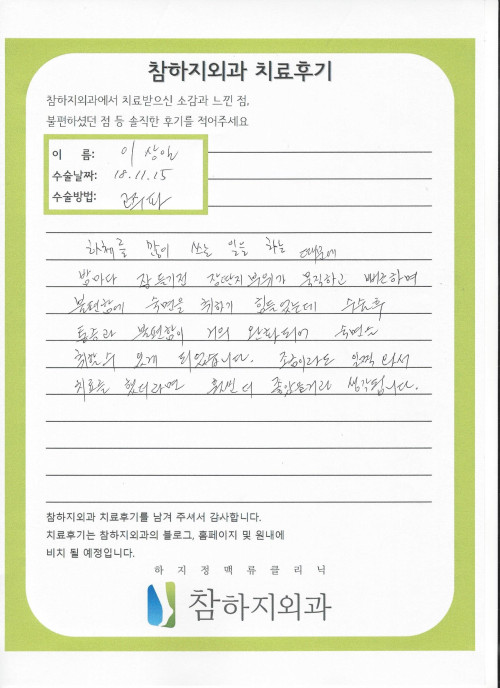 참하지외과 치료후기
참하지외과에서 치료받으신 소감과 느낀 점,
불편하셨던 점 등 솔직한 후기를 적어주세요
이 름: 이상일
수술날짜: 18.11.15
수술방법: 고주파
하체를 많이 쓰는 일을 하는 때문에
밤마다 잠들기전 장딴지 부위가 묵직하고 뻐근하며
불편함에 숙면을 취하기 힘들었는데 수술후
통증과 불편함이 거의 완화되어 숙면을
취할수 있게 되었습니다. 조금이라도 일찍 와서
치료를 했더라면 훨씬 더 좋았을거라 생각됩니다.
참하지외과 치료후기를 남겨 주셔서 감사합니다.
치료후기는 참하지외과의 블로그, 홈페이지 및 원내에
비치 될 예정입니다.
하지정맥류클리닉
참하지외과